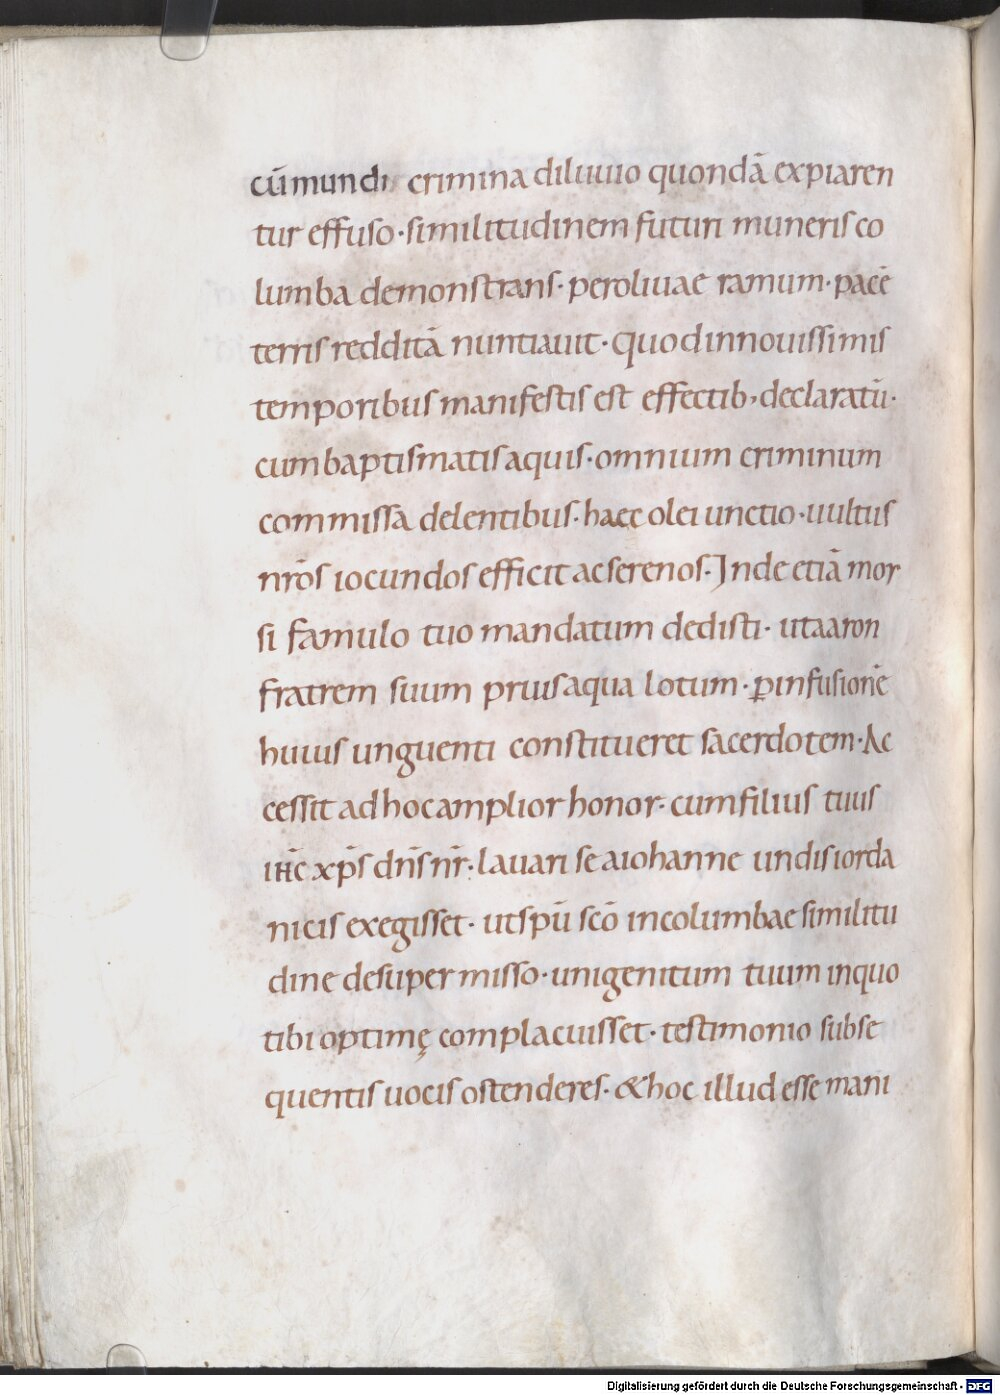 cū mundi crimina diluuio quondā expiaren
tur effuso · similitudinem futuri muneris co
lumba demonstrans · per oliuae ramum · pacē
terris redditā nuntiauit · quod in nouissimis
temporibus manifestis est effectib; declaratū ·
cum baptismatis aquis · omnium criminum
commissa delentibus · haec olei unctio · uultus
nr̄os iocundos efficit ac serenos · Inde etiā moy
si famulo tuo mandatum dedisti · ut aaron
fratrem suum prius aqua lotum · ꝑ infusionē
huius unguenti constitueret sacerdotem · Ac
cessit ad hoc amplior honor · cum filius tuus
ih̄c xp̄s dn̄s nr̄ · lauari se a iohanne undis iorda
nicis exegisset · ut sp̄u sc̄o in columbae similitu
dine desuper misso · unigenitum tuum in quo
tibi optimę complacuisset · testimonio subse
quentis uocis ostenderes · & hoc illud esse mani
Digitalisierung gefördert durch die Deutsche Forschungsgemeinschaft - DFG